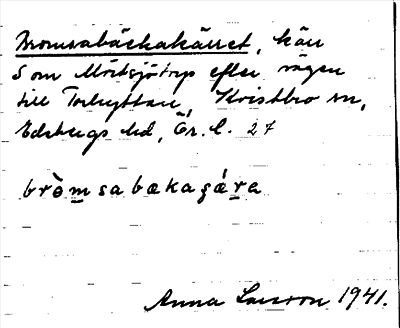 Bromsabäckakärret, kärr
S om Mörtsjötorp efter vägen
till Torhyttan, Kvistbro sn,
Edsbergs hd, Ör. l. 27
bròm̲sabækaɕǽr̲a
Anna Larsson 1941.